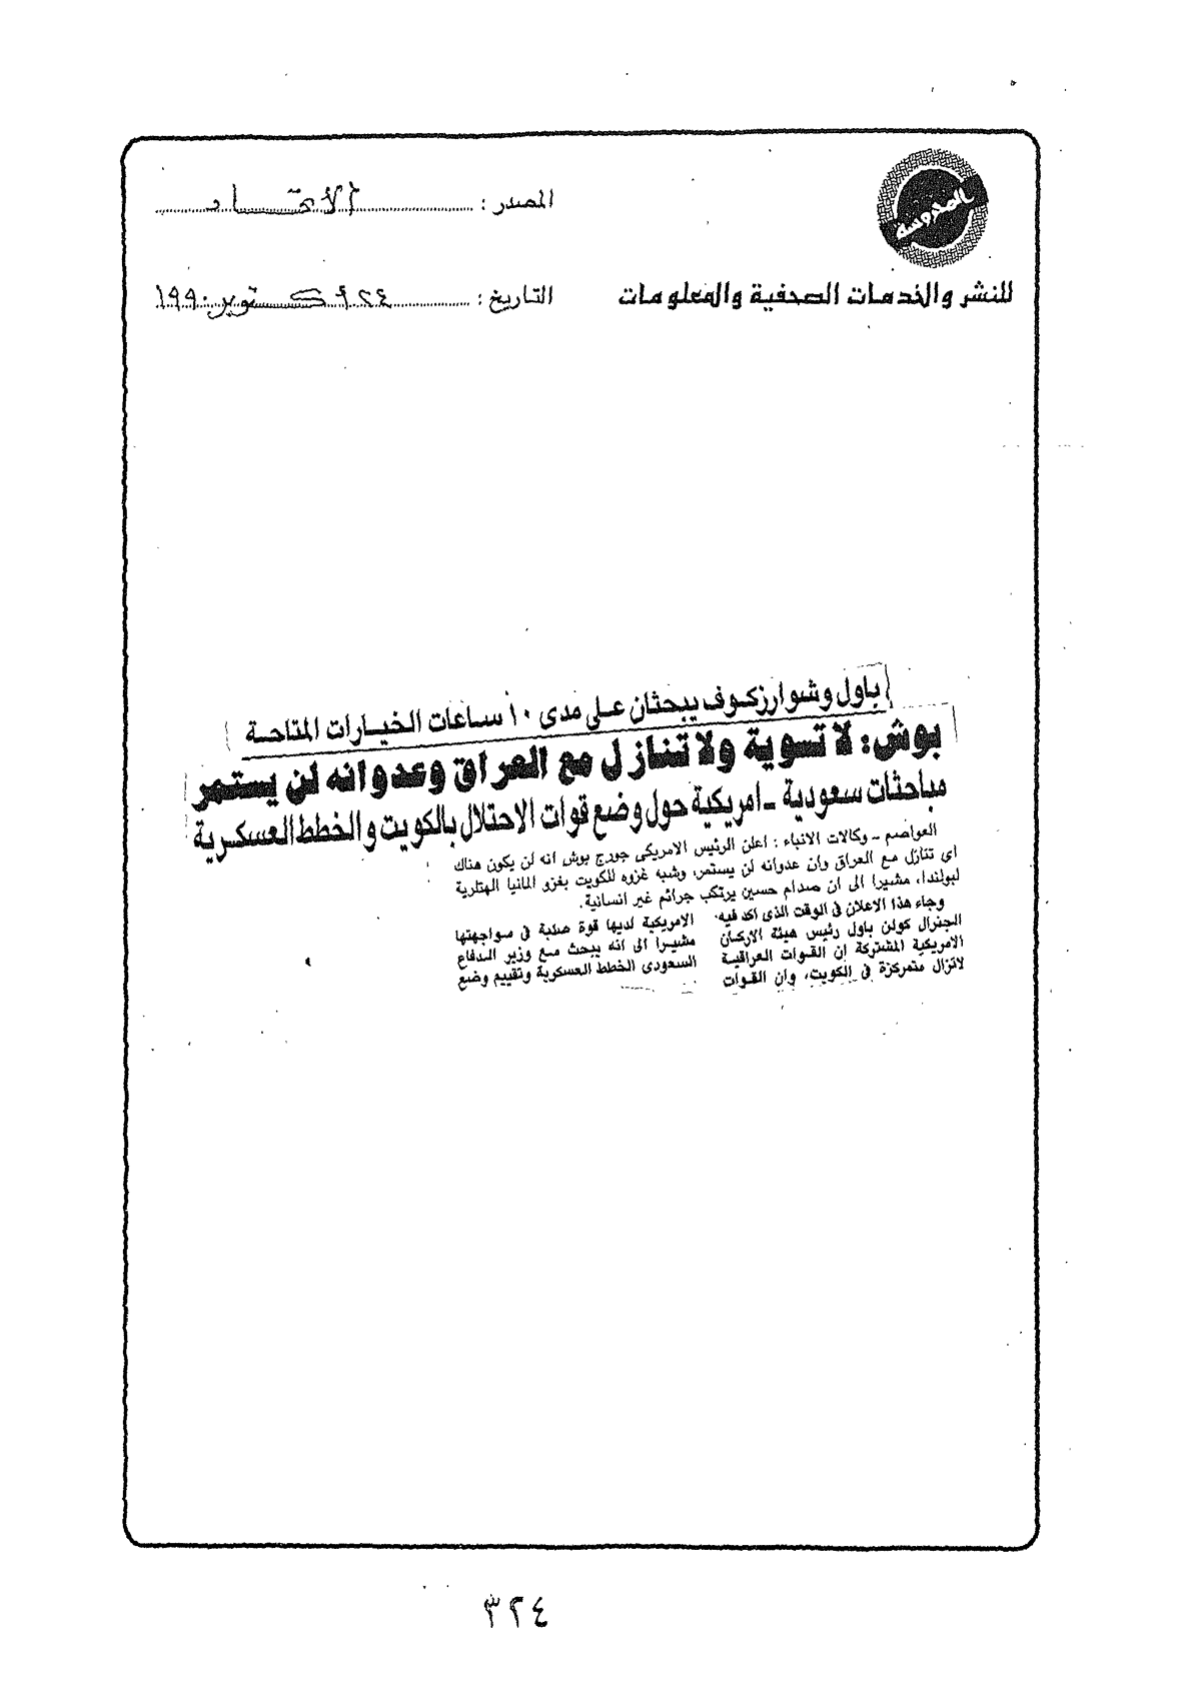 المحروسة
المصدر : الاتحاد
للنشر والخدمات الصحفية والمعلومات
التاريخ : ٢٤ أكتوبر ١٩٩٠
باول وشوارزكوف يبحثان على مدى ١٠ ساعات الخيارات المتاحة
بوش: لا تسوية ولا تنازل مع العراق وعدوانه لن يستمر
مباحثات سعودية - امريكية حول وضع قوات الاحتلال بالكويت والخطط العسكرية
العواصم - وكالات الانباء : اعلن الرئيس الامريكى جورج بوش انه لن يكون هناك
اى تنازل مع العراق وان عدوانه لن يستمر، وشبه غزوه للكويت بغزو المانيا الهتلرية
لبولندا، مشيرا الى ان صدام حسين يرتكب جرائم غير انسانية.
وجاء هذا الاعلان فى الوقت الذى اكد فيه
الجنرال كولن باول رئيس هيئة الاركان
الامريكية المشتركة إن القوات العراقية
لاتزال متمركزة فى الكويت، وان القوات
الامريكية لديها قوة صلبة فى مواجهتها
مشيرا الى انه يبحث مع وزير الدفاع
السعودى الخطط العسكرية وتقييم وضع
٣٢٤